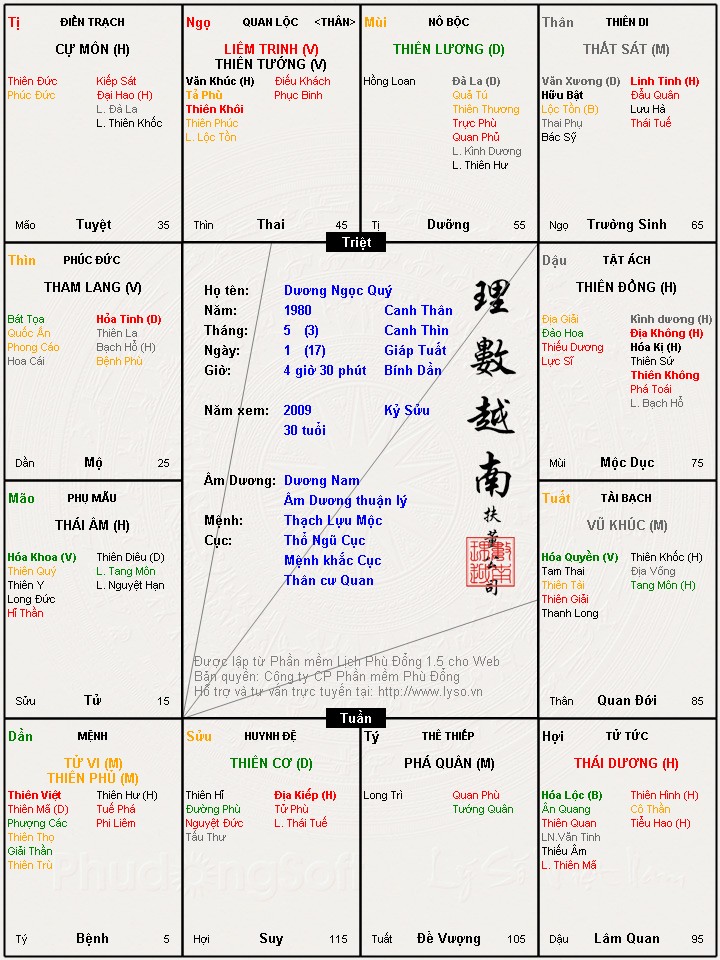 Tị ĐIỀN TRẠCH
CỰ MÔN (H)
Thiên Đức
Phúc Đức
Kiếp Sát
Đại Hao (H)
L. Đà La
L. Thiên Khốc
Mão Tuyệt 35
Ngọ QUAN LỘC <THÂN>
LIÊM TRINH (V)
THIÊN TƯỚNG (V)
Văn Khúc (H)
Tả Phù
Thiên Khôi
Thiên Phúc
L. Lộc Tồn
Điếu Khách
Phục Binh
Thìn Thai 45
Mùi NÔ BỘC
THIÊN LƯƠNG (D)
Hồng Loan
Đà La (D)
Quả Tú
Thiên Thương
Trực Phù
Quan Phủ
L. Kình Dương
L. Thiên Hư
Tị Dưỡng 55
Thân THIÊN DI
THẤT SÁT (M)
Văn Xương (D)
Hữu Bật
Lộc Tồn (B)
Thai Phụ
Bác Sỹ
Linh Tinh (H)
Đẩu Quân
Lưu Hà
Thái Tuế
Ngọ Trường Sinh 65
Triệt
Thìn PHÚC ĐỨC
THAM LANG (V)
Bát Tọa
Quốc Ấn
Phong Cáo
Hoa Cái
Hỏa Tinh (D)
Thiên La
Bạch Hổ (H)
Bệnh Phù
Dần Mộ 25
Họ tên: Dương Ngọc Quý
Năm: 1980 Canh Thân
Tháng: 5 (3) Canh Thìn
Ngày: 1 (17) Giáp Tuất
Giờ: 4 giờ 30 phút Bính Dần
Năm xem: 2009 Kỷ Sửu
30 tuổi
Âm Dương: Dương Nam
Âm Dương thuận lý
Mệnh: Thạch Lựu Mộc
Cục: Thổ Ngũ Cục
Mệnh khắc Cục
Thân cư Quan
理數越南
扶董公司
Được lập từ Phần mềm Lịch Phù Đổng 1.5 cho Web
Bản quyền: Công ty CP Phần mềm Phù Đổng
Hỗ trợ và tư vấn trực tuyến tại: http://www.lyso.vn
Dậu TẬT ÁCH
THIÊN ĐỒNG (H)
Địa Giải
Đào Hoa
Thiếu Dương
Lực Sĩ
Kình dương (H)
Địa Không (H)
Hóa Kị (H)
Thiên Sứ
Thiên Không
Phá Toái
L. Bạch Hổ
Mùi Mộc Dục 75
Mão PHỤ MẪU
THÁI ÂM (H)
Hóa Khoa (V)
Thiên Quý
Thiên Y
Long Đức
Hỉ Thần
Thiên Diêu (D)
L. Tang Môn
L. Nguyệt Hạn
Sửu Tử 15
Tuất TÀI BẠCH
VŨ KHÚC (M)
Hóa Quyền (V)
Tam Thai
Thiên Tài
Thiên Giải
Thanh Long
Thiên Khốc (H)
Địa Võng
Tang Môn (H)
Thân Quan Đới 85
Tuần
Dần MỆNH
TỬ VI (M)
THIÊN PHỦ (M)
Thiên Việt
Thiên Mã (D)
Phượng Các
Thiên Thọ
Giải Thần
Thiên Trù
Thiên Hư (H)
Tuế Phá
Phi Liêm
Tý Bệnh 5
Sửu HUYNH ĐỆ
THIÊN CƠ (D)
Thiên Hỉ
Đường Phù
Nguyệt Đức
Tấu Thư
Địa Kiếp (H)
Tử Phù
L. Thái Tuế
Hợi Suy 115
Tý THÊ THIẾP
PHÁ QUÂN (M)
Long Trì
Quan Phù
Tướng Quân
Tuất Đề Vượng 105
Hợi TỬ TỨC
THÁI DƯƠNG (H)
Hóa Lộc (B)
Ân Quang
Thiên Quan
LN.Văn Tinh
Thiếu Âm
L. Thiên Mã
Thiên Hình (H)
Cô Thần
Tiểu Hao (H)
Dậu Lâm Quan 95